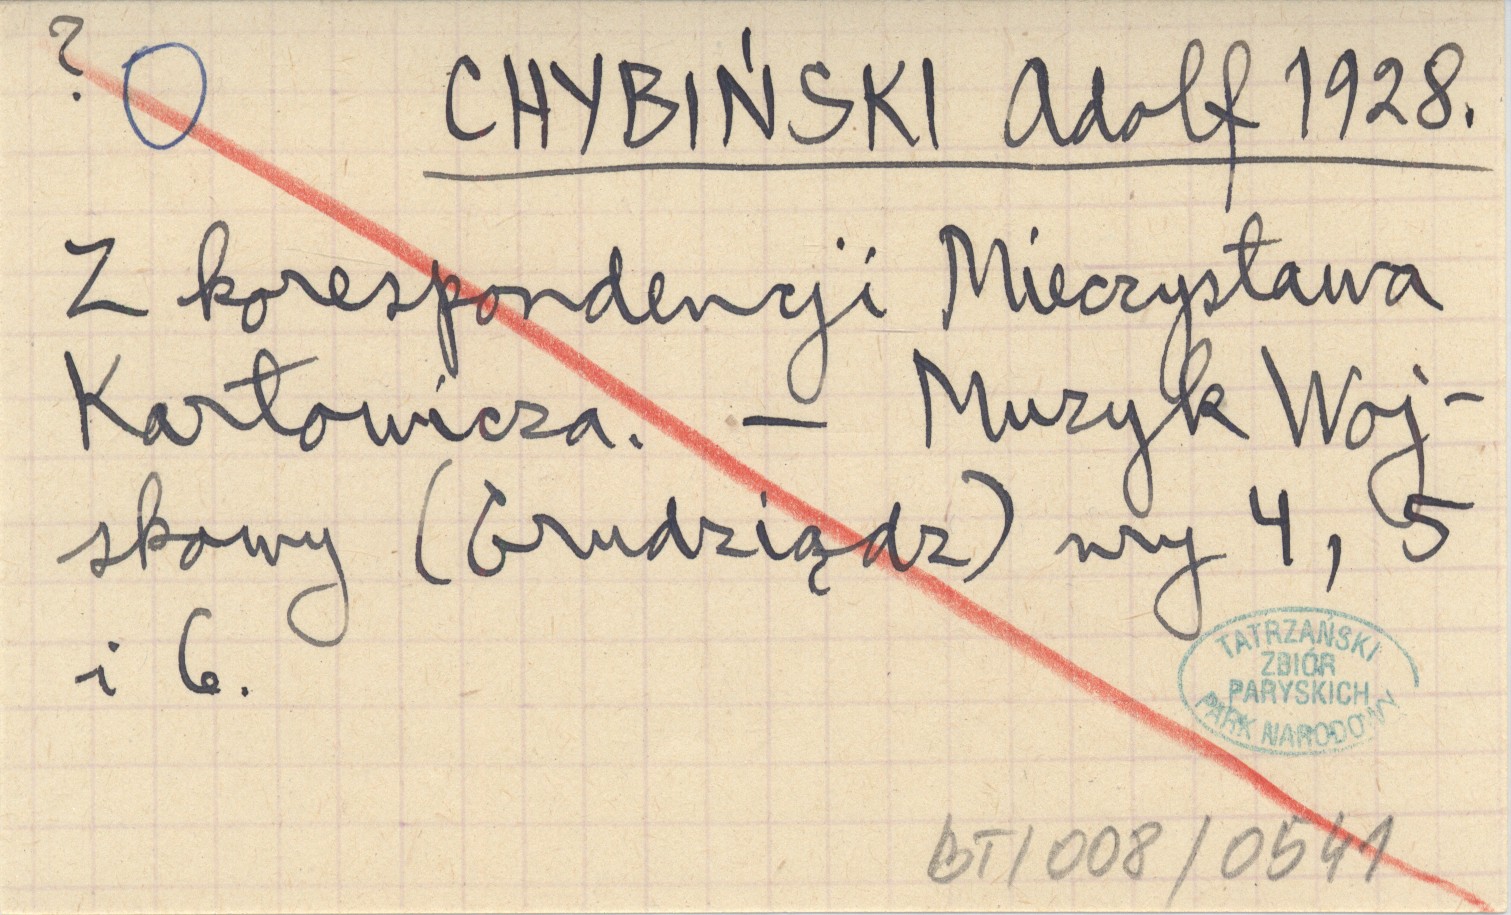 ?
CHYBIŃSKI Adolf 1928.
Z korespondencji Mieczysława
Karłowicza. — Muzyk Woj-
skowy (Grudziądz) nry 4, 5
i 6.
TATRZAŃSKI
ZBIÓR
PARYSKICH
PARK NARODOWY
BT/008/0541